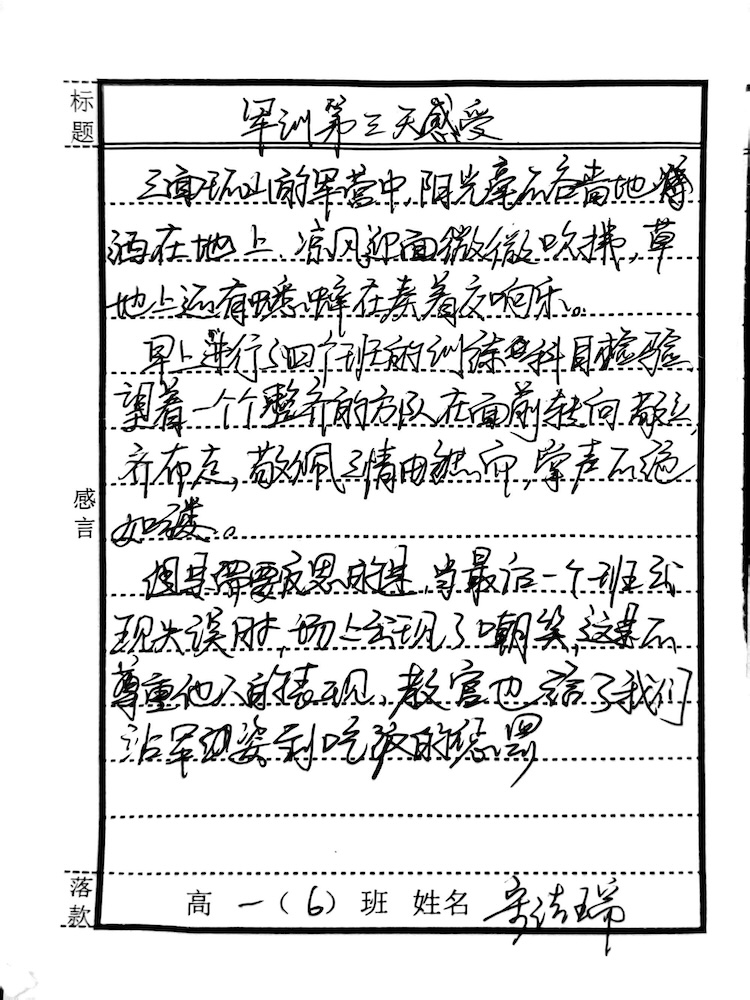 标题
军训第三天感受
三面环山的军营中,阳光毫不吝啬地
洒在地上,凉风迎面微微吹拂,草
地上还有蟋蟀在奏着交响乐。
早上进行了四个班的训练科目检验,
望着一个个整齐的方队在面前转向敬礼,
齐布走,敬佩之情由然而,掌声不绝
如缕。
感言
但是需要反思的是,当最后一个班出
现失误时,场上出现了嘲笑,这是不
尊重他人的表现,教官也给了我们
站军姿到吃饭的惩罚
落款
高一(6)班 姓名